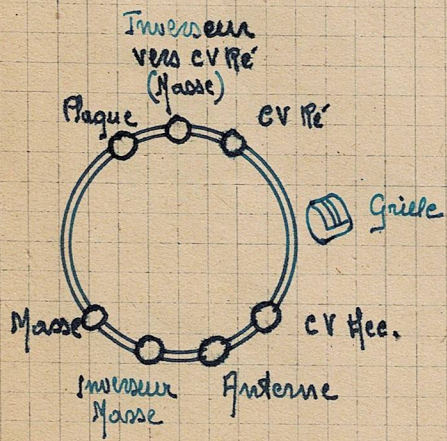 Inverseur
vers CV Ré
(Masse)
Plaque
CV Ré
Grille
Masse
CV Acc.
Inverseur
Masse
Antenne